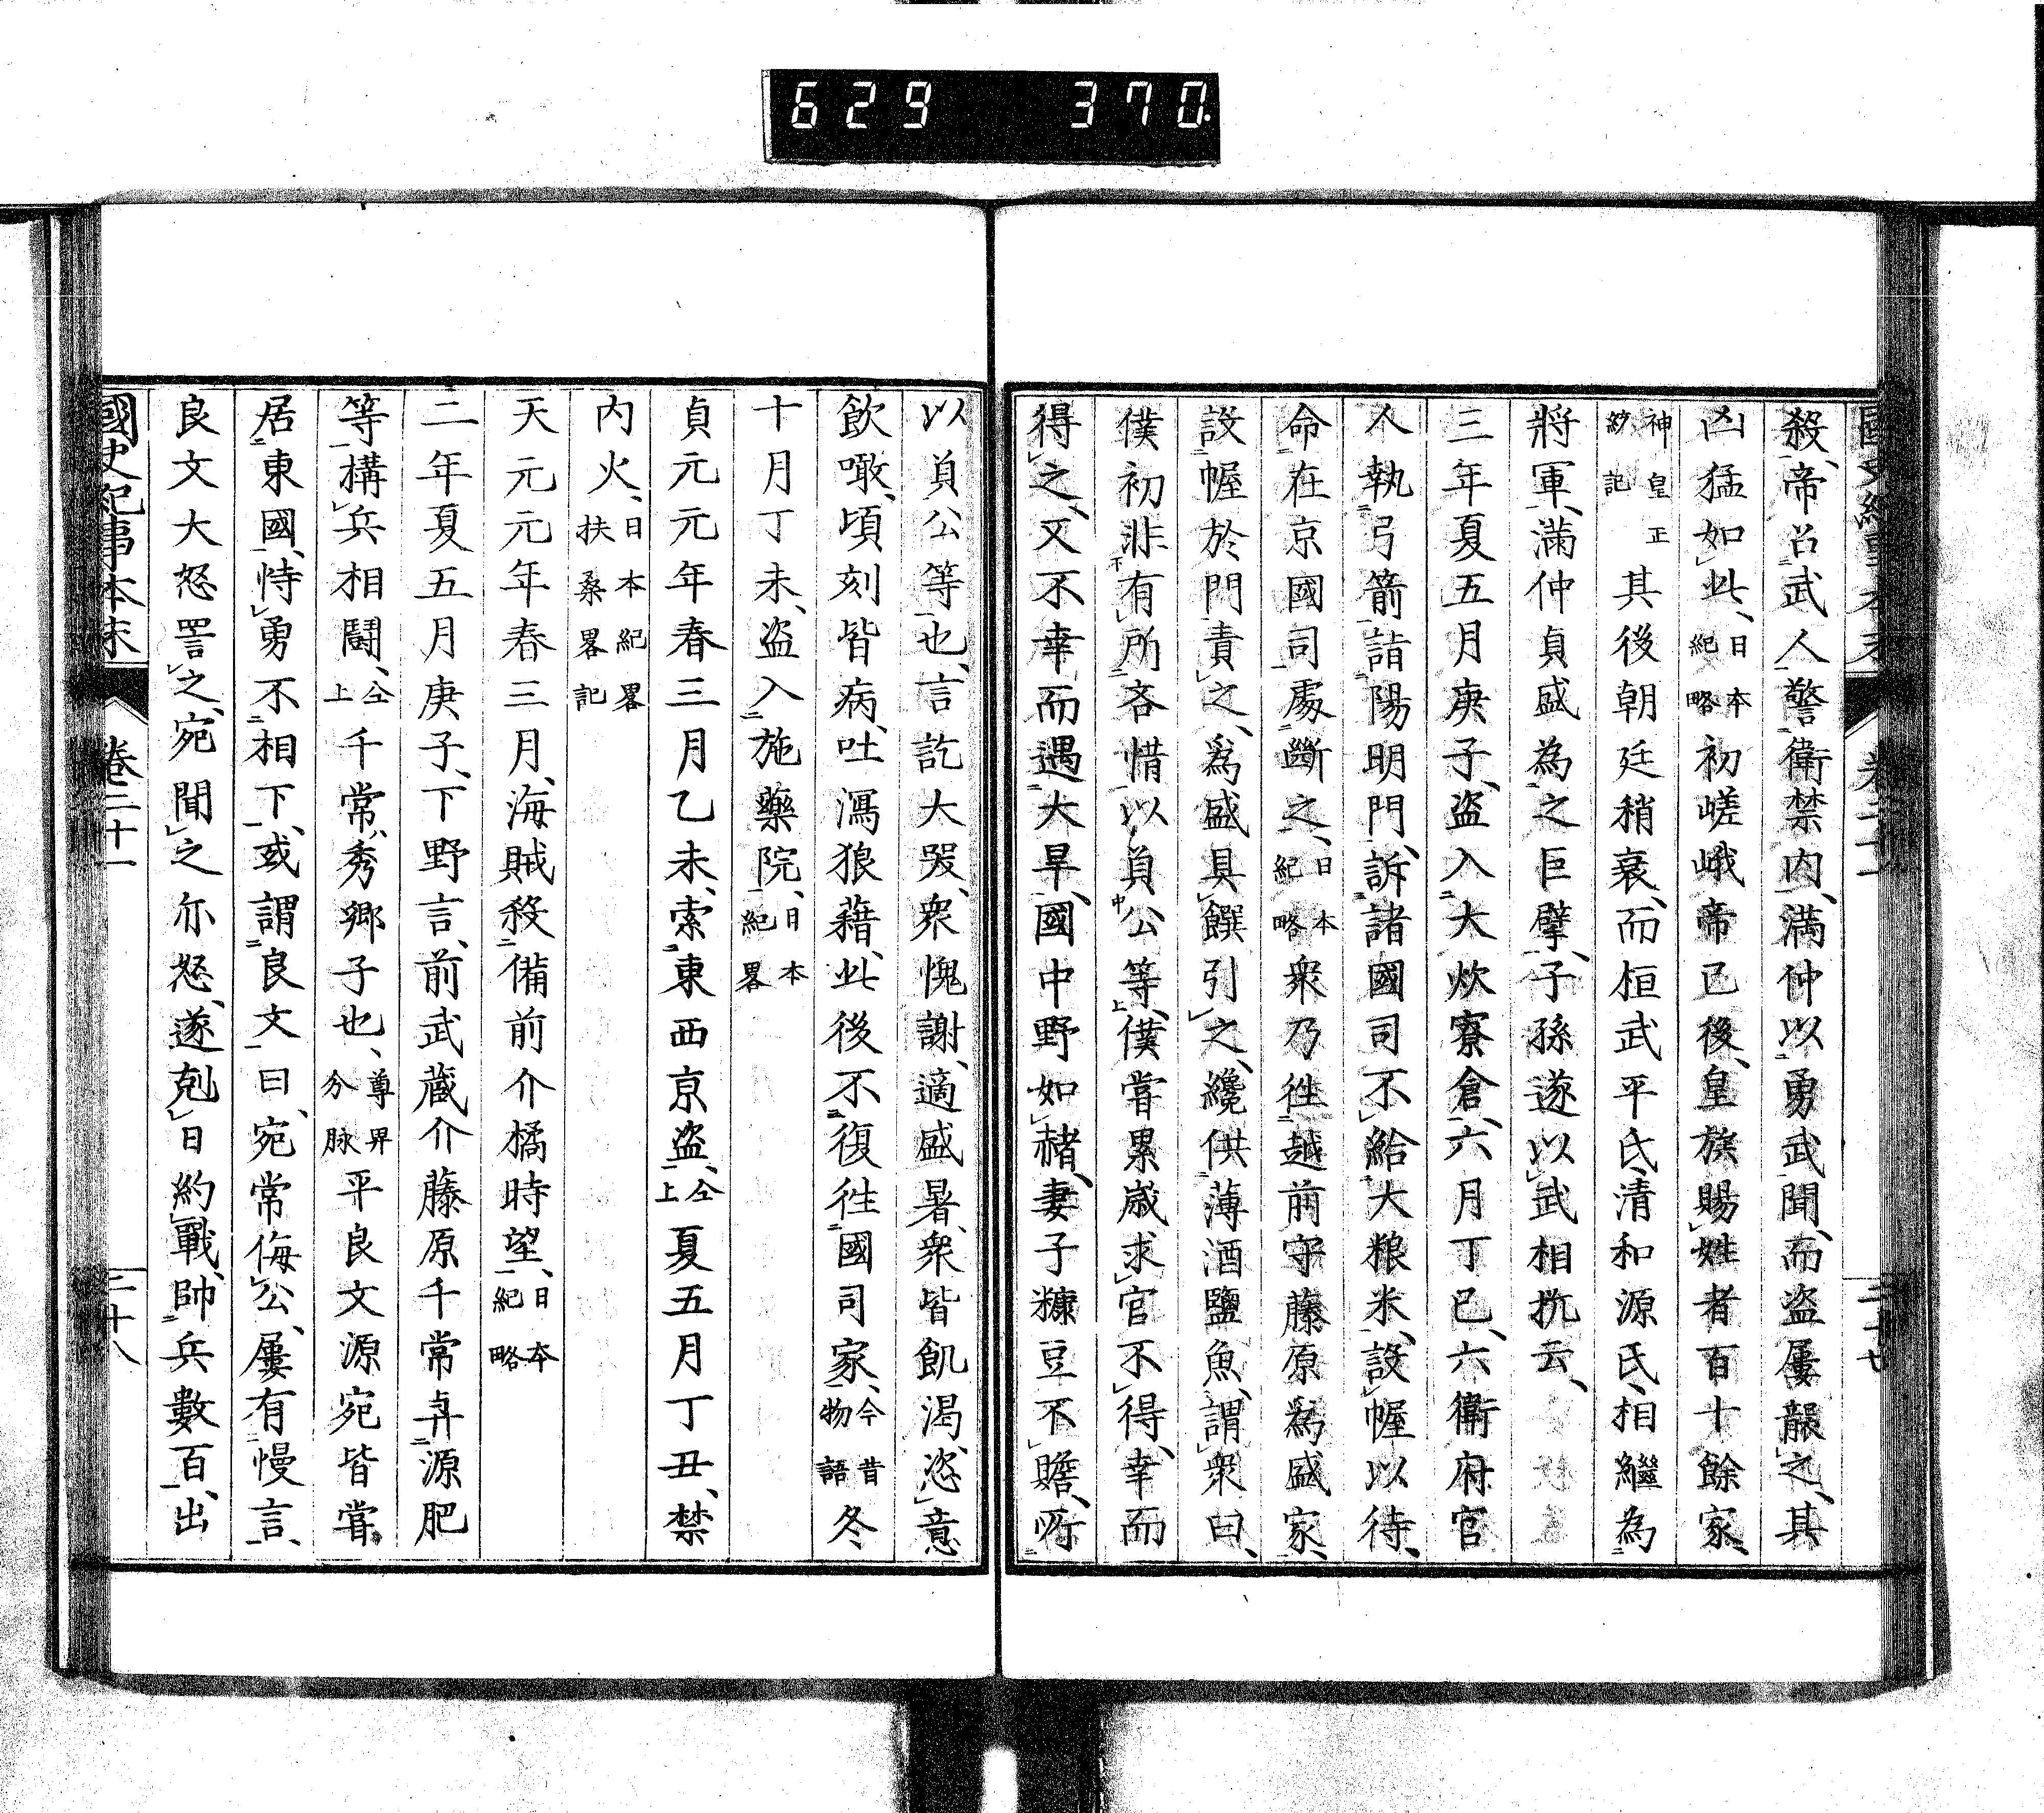 629 370.
國史紀事本末 卷二十一 二十七
殺、帝召武人警衛禁内、滿仲以勇武聞、而盗屢襲之、其
凶猛如此、日本紀略初嵯峨帝已後、皇族賜姓者百十餘家、
神皇正鈔記其後朝廷稍衰、而桓武平氏、清和源氏、相繼為
將軍、滿仲貞盛為之巨擘、子孫遂以武相抗云、
三年夏五月庚子、盗入大炊寮倉、六月丁巳、六衛府官
人執弓箭詣陽明門、訴諸國司不給大粮米、設幄以待、
命在京國司處斷之、日本紀略衆乃徃越前守藤原爲盛家、
設幄於門責之、爲盛具饌引之、纔供薄酒鹽魚、謂衆曰、
僕初非有所吝惜以負公等、僕嘗累歳求官不得、幸而
得之、又不幸而遇大旱、國中野如赭、妻子糠豆不贍、所
以負公等也、言訖大哭、衆愧謝、適盛暑、衆皆飢渴、恣意
飲噉、頃刻皆病、吐瀉狼藉、此後不復徃國司家、今昔物語冬
十月丁未、盗入施藥院、日本紀畧
貞元元年春三月乙未、索東西京盗、仝上夏五月丁丑、禁
内火、日本紀畧扶桑畧記
天元元年春三月、海賊殺備前介橘時望、日本紀略
二年夏五月庚子、下野言、前武藏介藤原千常與源肥
等構兵相鬪、仝上千常、秀郷子也、尊卑分脉平良文源宛皆嘗
居東國、恃勇不相下、或謂良文曰、宛常侮公、屢有慢言、
良文大怒詈之、宛聞之亦怒、遂剋日約戰、帥兵數百、出
國史紀事本末 卷二十一 二十八